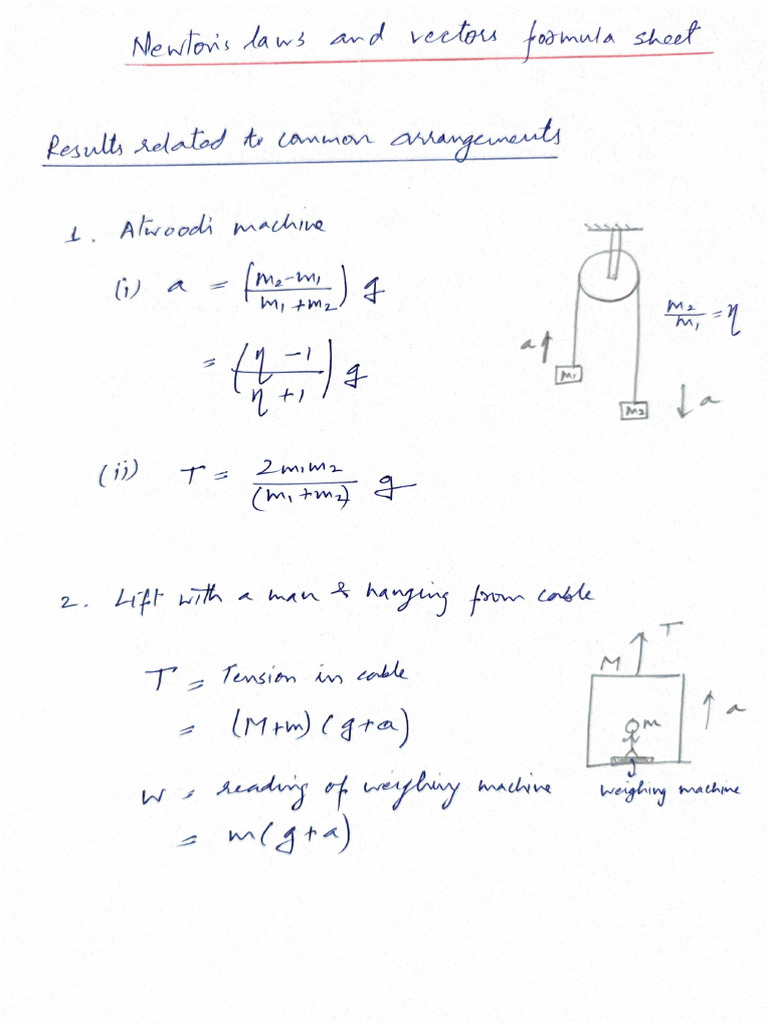 Newton's laws and vectors formula sheet
Results related to common arrangements
1. Atwood's machine
(i) a = (m₂-m₁/m₁+m₂) g
= (η-1/η+1) g
m₂/m₁ = η
a
m₁
m₂
a
(ii) T = 2m₁m₂/(m₁+m₂) g
2. Lift with a man & hanging from cable
T = Tension in cable
= (M+m) (g+a)
T
M
a
m
W = reading of weighing machine
= m(g+a)
weighing machine